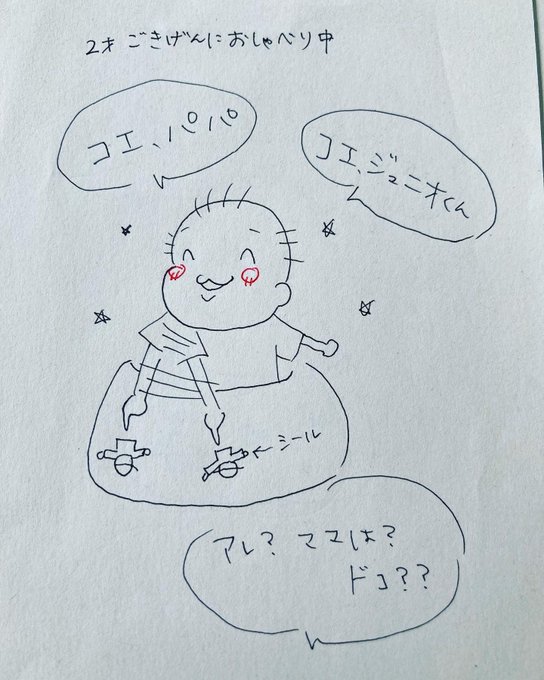 2才 ごきげんにおしゃべり中
コエ、パパ
コエ、ジュニオくん
←シール
アレ? ママは?
ドコ??